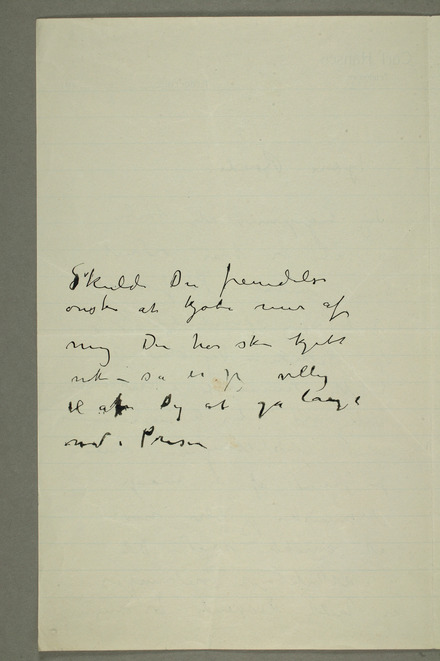 Skulde Du fremdeles
ønske at kjøbe mer af
mig Du har kjøbt
nok – så er jeg villig
til at gå langt
ned i Prisen